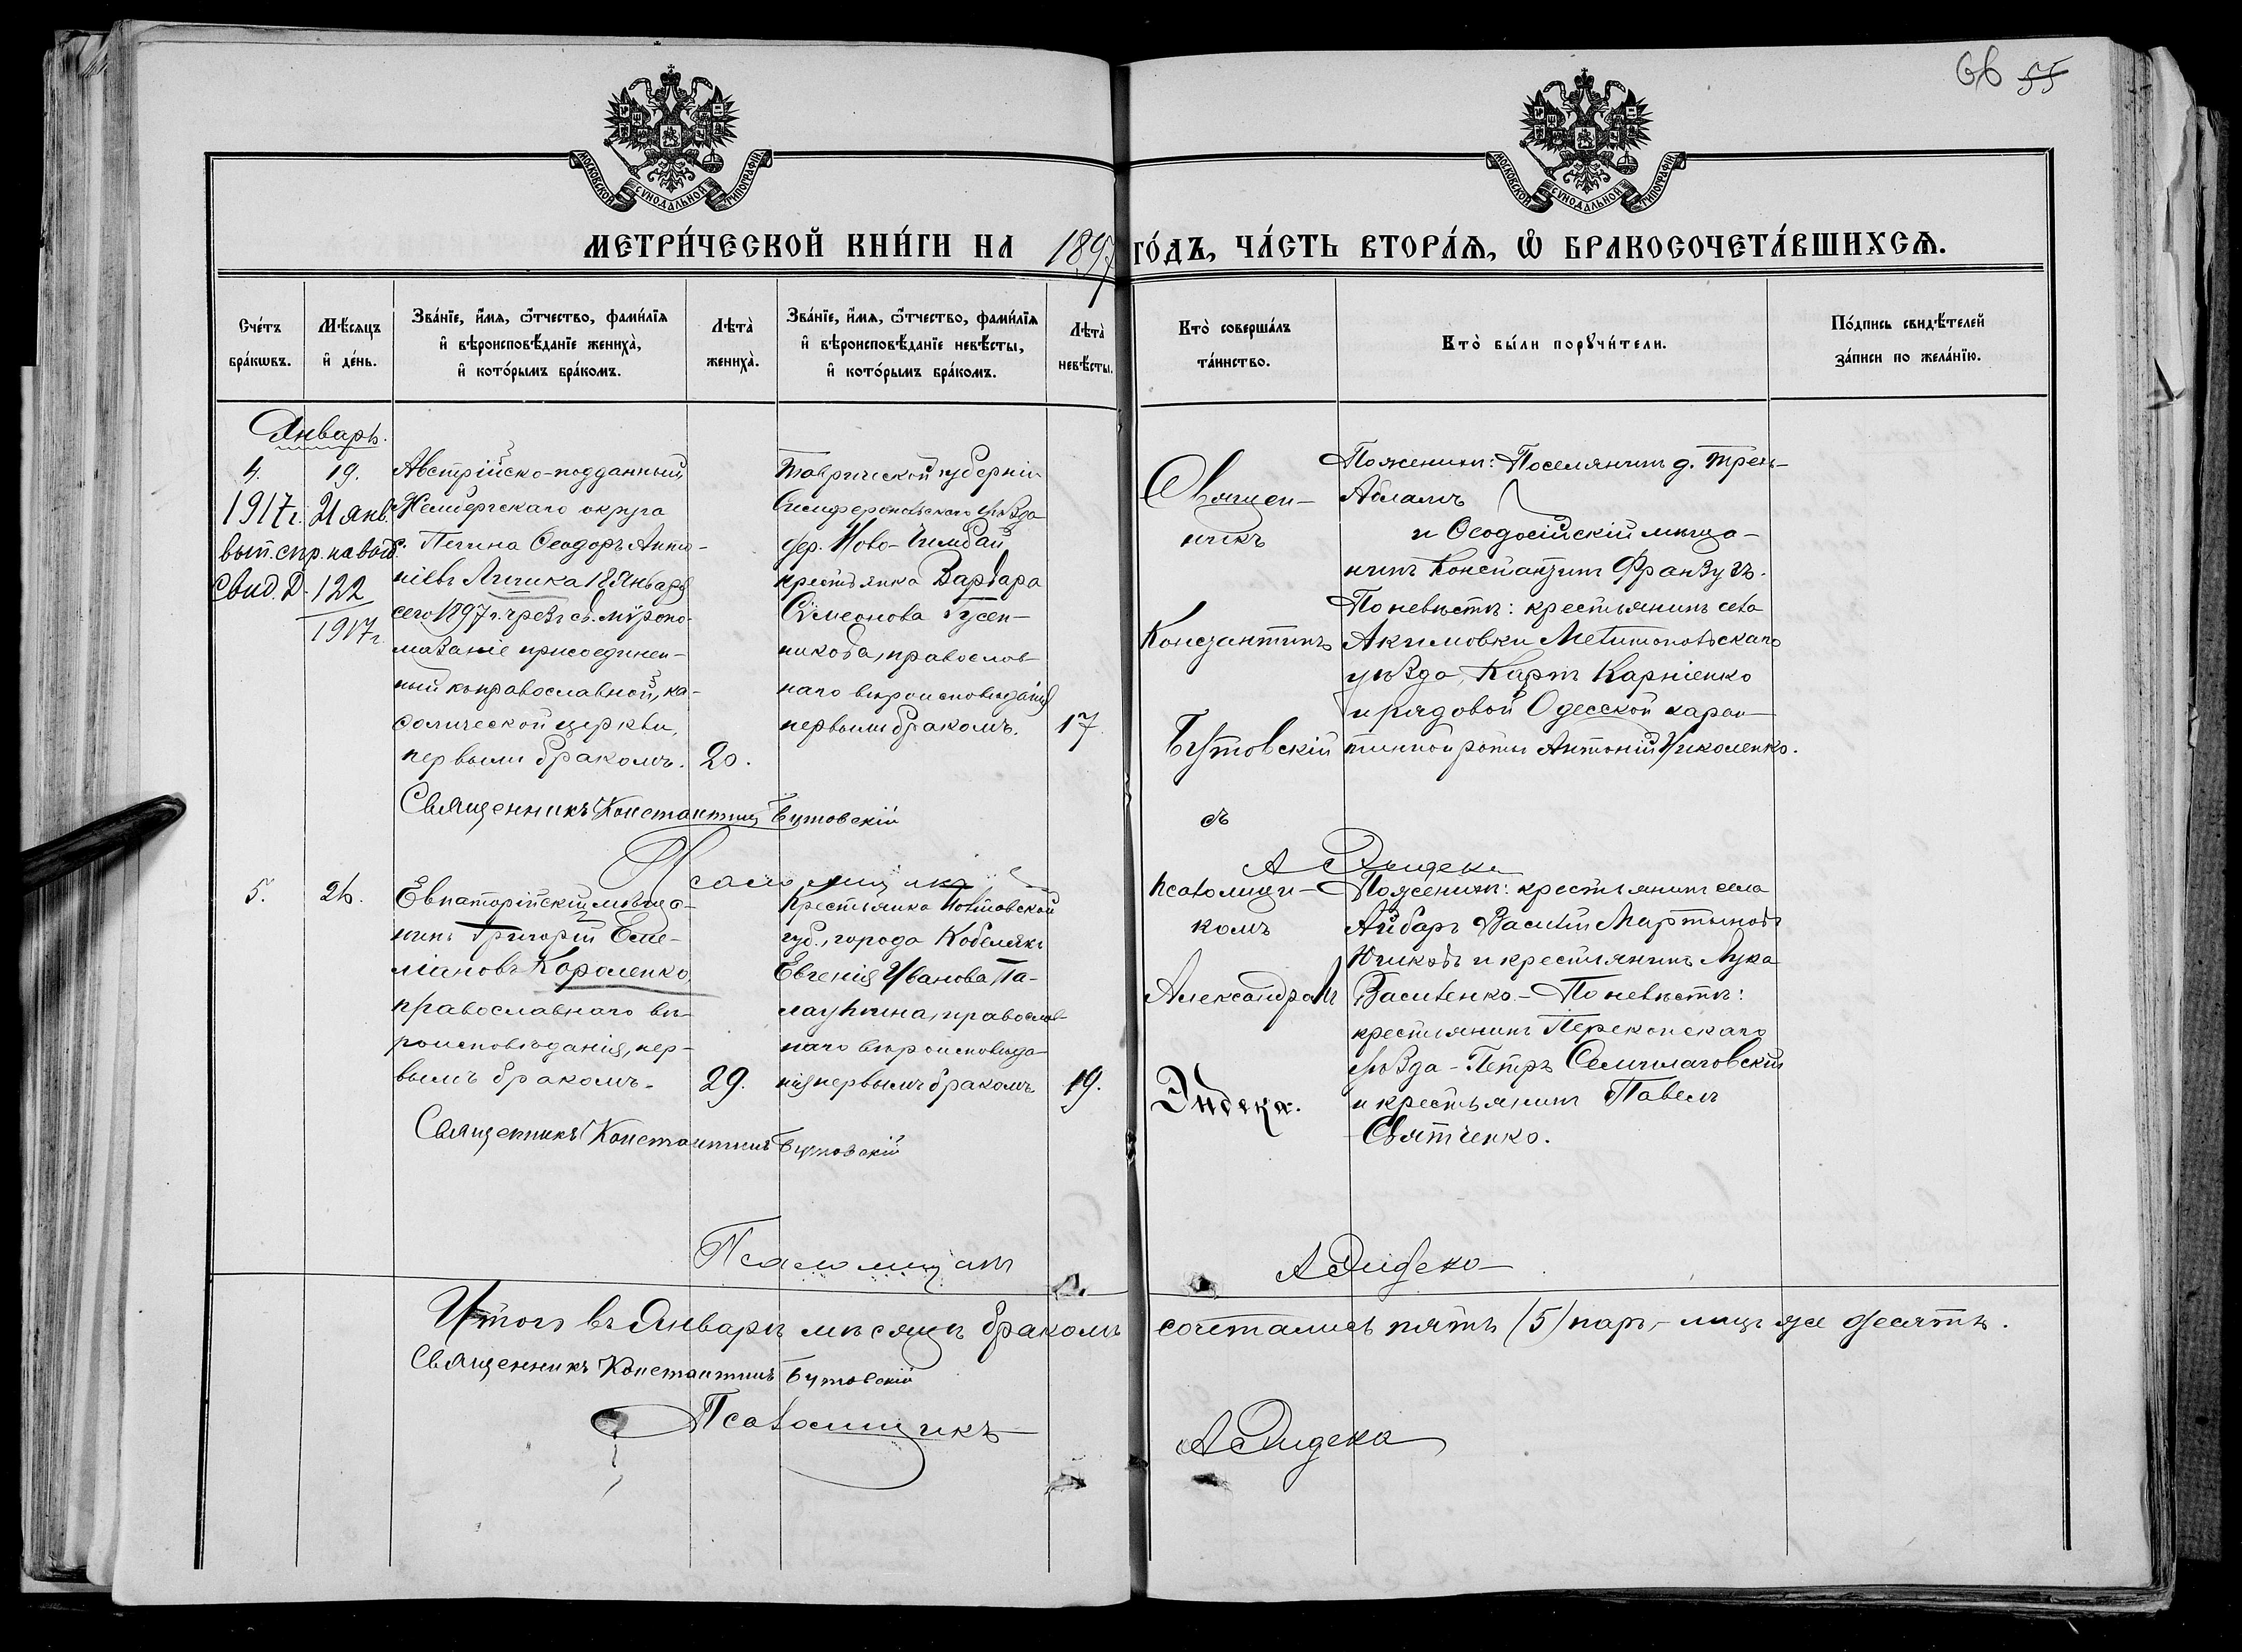 66 55
МОСКОВСКОЙ СУНОДАЛЬНОЙ ТИПОГРАФІИ.
МОСКОВСКОЙ СУНОДАЛЬНОЙ ТИПОГРАФІИ.
МЕТРИ́ЧЕСКОЙ КНИ́ГИ НА 1897 ГО́ДЪ, ЧА́СТЬ ВТОРА́Ѧ, Ѽ БРАКОСОЧЕТА́ВШИХСѦ.
Сче́тъ
бра́кѡвъ.
Мѣ́сяцъ
и҆ де́нь.
Зва́нїе, и҆́мѧ, ѻ҆́тчество, фами́лїѧ
и҆ вѣроисповѣ́данїе жениха̀,
и҆ кото́рымъ бра́комъ.
Лѣта̀
жениха̀.
Зва́нїе, и҆́мѧ, ѻ҆́тчество, фами́лїѧ
и҆ вѣроисповѣ́данїе невѣ́сты,
и҆ кото́рымъ бра́комъ.
Лѣта̀
невѣ́сты.
Кто̀ соверша́лъ
та́инство.
Кто̀ бы́ли порꙋчи́тели.
По́дпись свидѣ́телей
за́писи по жела́нїю.
Январь.
4.
19.
1917г. 21 янв.
выт. спр. на выд.
Свид. Д. 122
1917г
Австрійско-подданный,
округа
с. Печина Ѳеодоръ Анто-
ніевъ Личика 18 Января
сего 1897 г. чрезъ св. мѵропо-
мазаніе присоединен-
ный къ православной, ка-
ѳолической церкви,
первымъ бракомъ.
20.
Таврической губерніи
Симферопольскаго уѣзда
дер. Ново-Чембай
крестьянка Варвара
Сѵмеонова Гусен-
никова, православ-
наго вѣроисповѣданія
первымъ бракомъ.
17
Священникъ Константинъ Бутовскій
Псаломщикъ
А Эндека
Священ-
никъ
Константинъ
Бутовскій
съ
псаломщи-
комъ
Александромъ
Эндека.
По женихѣ: Поселянинъ д. Трехъ-
Абламъ
и Ѳеодосійскій мѣща-
нинъ Константинъ Французъ.
По невѣстѣ: крестьянинъ села
Акимовки Мелитопольскаго
уѣзда, Карпъ Карпіенко
и рядовой Одесской каран-
тинной роты Антоній Николенко.
5.
26.
Евпаторійскій мѣща-
нинъ Григорій Еме-
ліановъ Короленко,
православнаго вѣ-
роисповѣданія, пер-
вымъ бракомъ.
29.
Крестьянка Полтавской
губ., города Кобеляки
Евгенія Иванова, Па-
православ-
наго вѣроисповѣда-
нія первымъ бракомъ
19.
По женихѣ: крестьянинъ села
Айбаръ Василій Мартыновъ
Юшковъ и крестьянинъ Лука
Василенко - По невѣстѣ:
крестьянинъ Перекопскаго
уѣзда - Петръ
и крестьянинъ Павелъ
Святченко.
Священникъ Константинъ Бутовскій
Псаломщикъ
А Эндека
Итого въ Январѣ мѣсяцѣ бракомъ сочетались пять (5) паръ, - лицъ же десять.
Священникъ Константинъ Бутовскій
Псаломщикъ
А Эндека